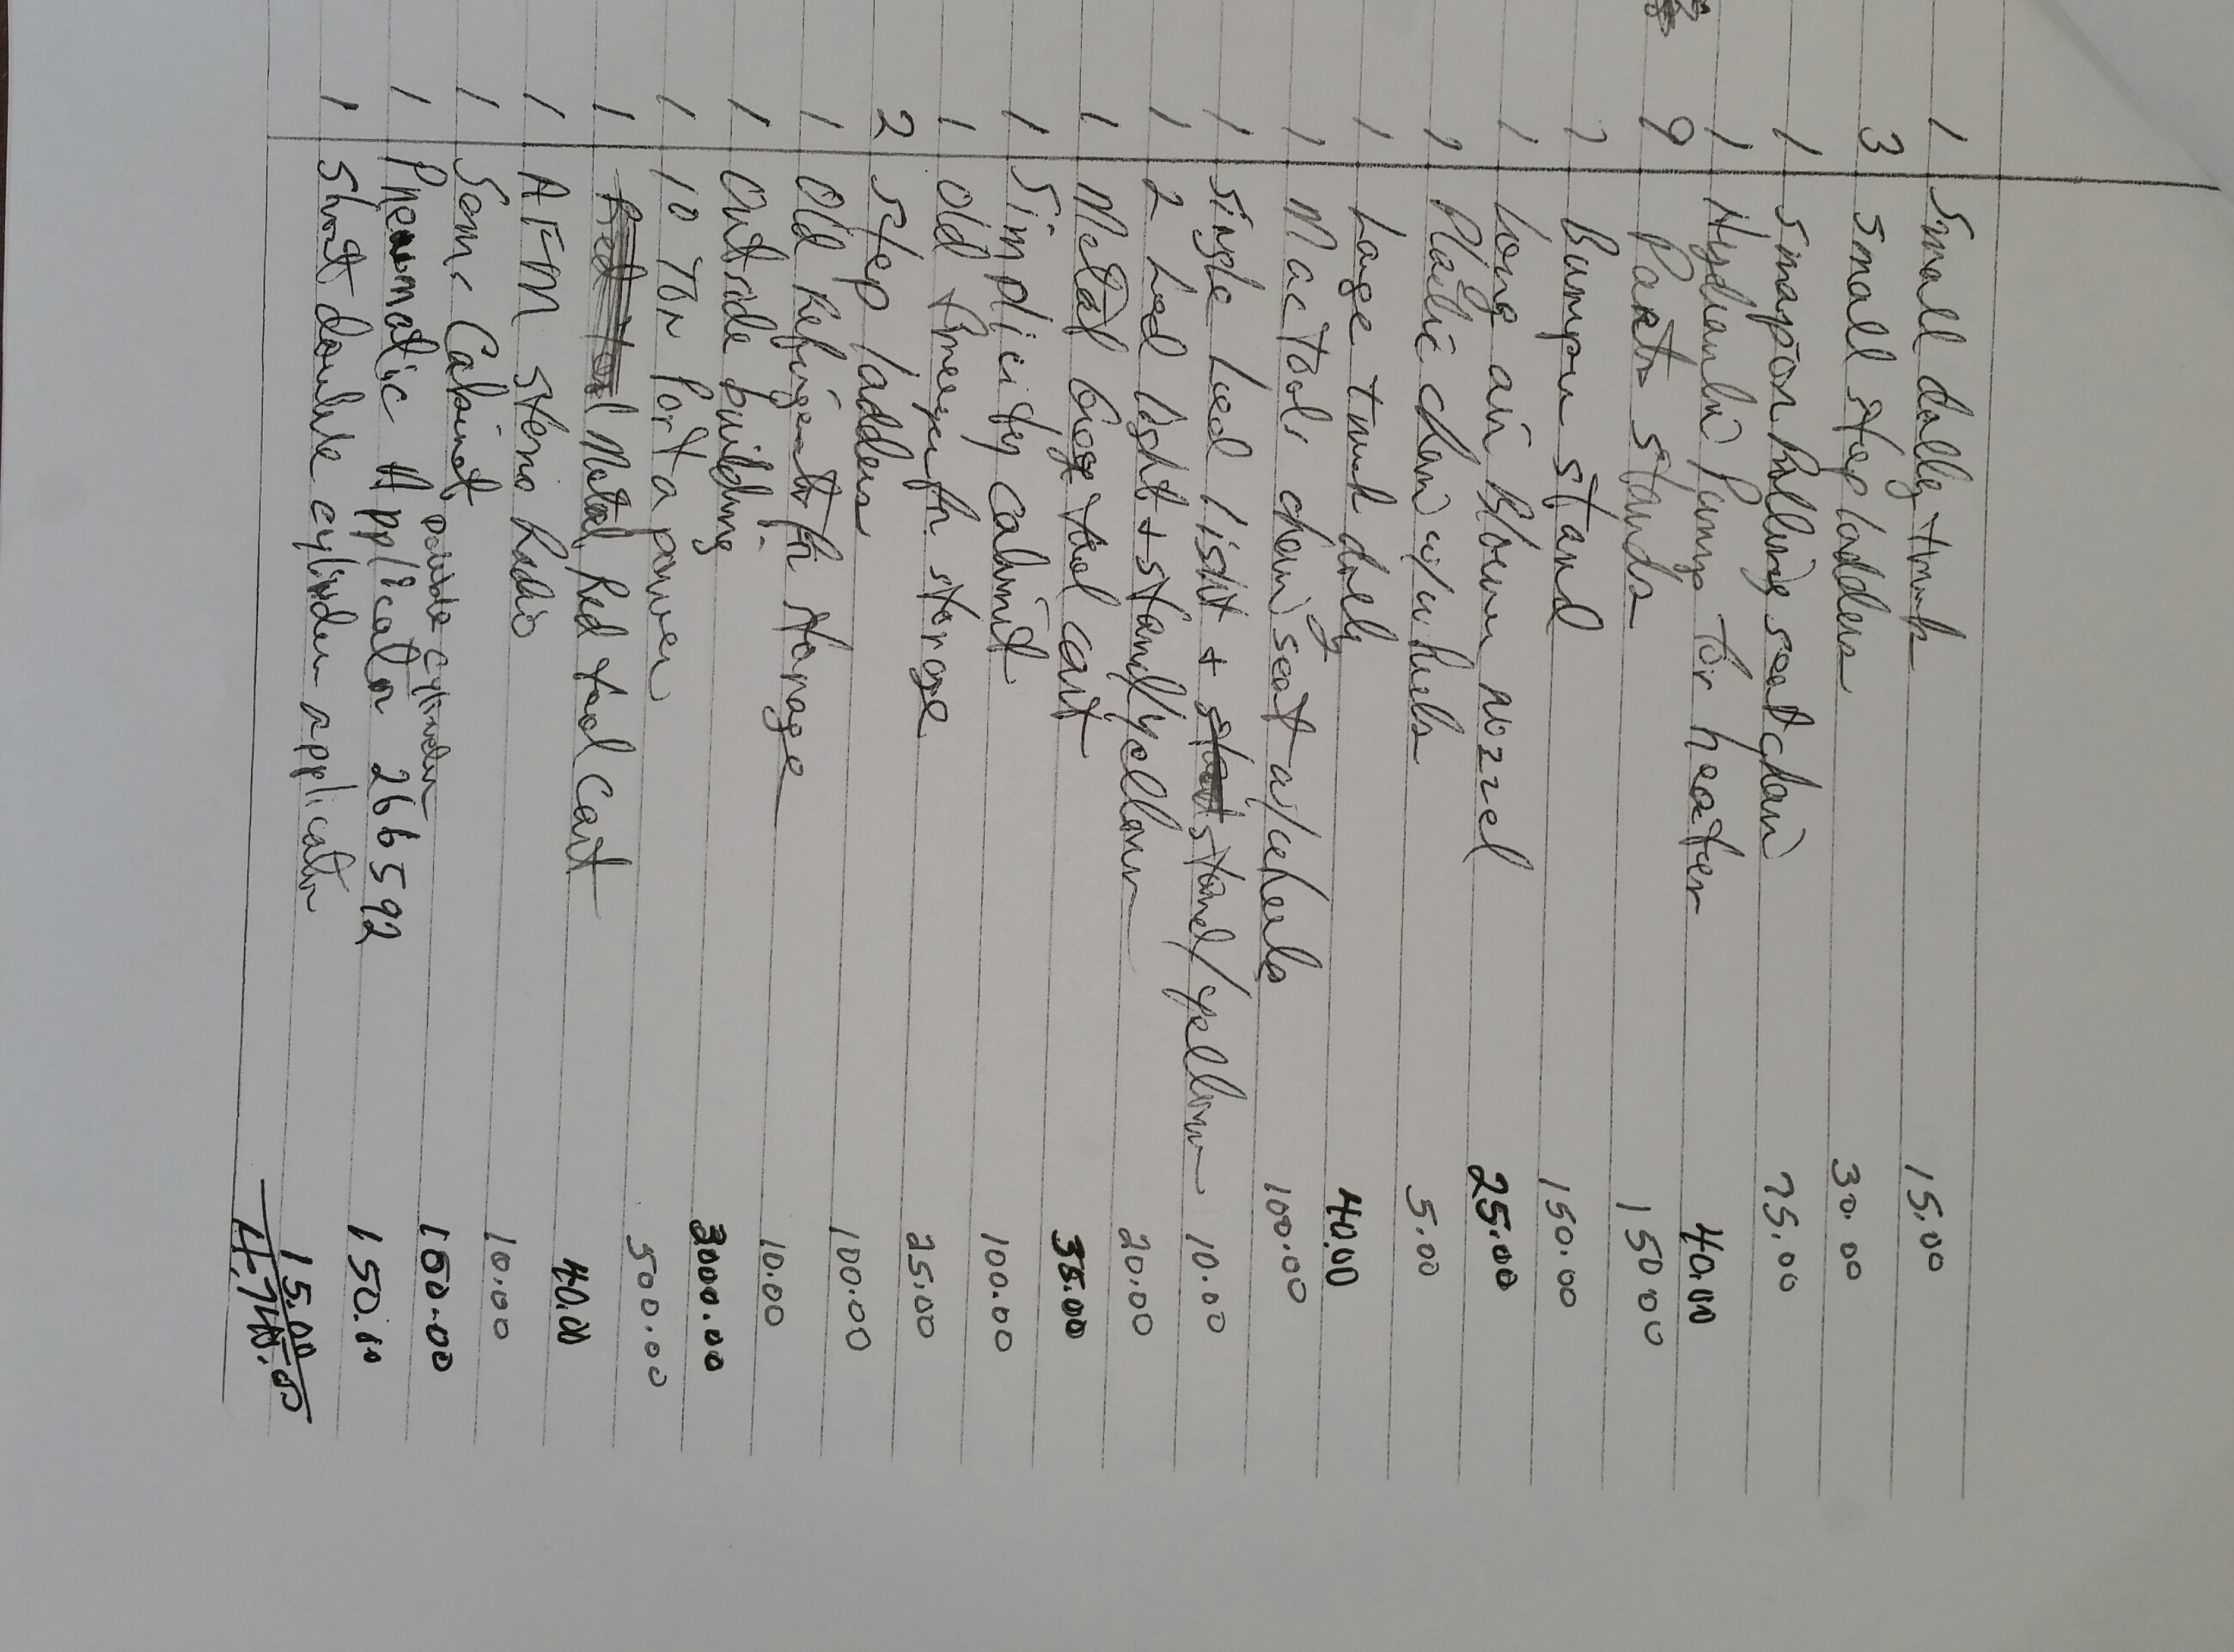 1 Small dolly trunk 15.00
3 Small step ladders 30.00
1 Snapon Rolling seat chair 75.00
1 Hydraulic Pump for heater 40.00
9 Parts stands 150.00
Bumper stand 150.00
1 Long air Blower nozzel 25.00
1 Plastic chair w/wheels 5.00
1 Large trunk dolly 40.00
1 Mac Tools chair seat w/wheels 100.00
1 Single Led light + stand/yellow 10.00
1 2 Led light + stand/yellow 20.00
1 Metal Grey tool cart 35.00
1 Simplicity Cabinit 100.00
1 Old Freezer for storage 25.00
2 Step ladders 100.00
1 Old Refrigerator for storage 10.00
1 Outside building 3000.00
1 10 Ton Port a power 500.00
1 Metal Red tool Cart 40.00
1 AFM Sterio Radio 10.00
1 Cabinet 150.00
double cylinder
1 Pneumatic Applicator 266592 150.00
1 Short double cylinder applicator 15.00